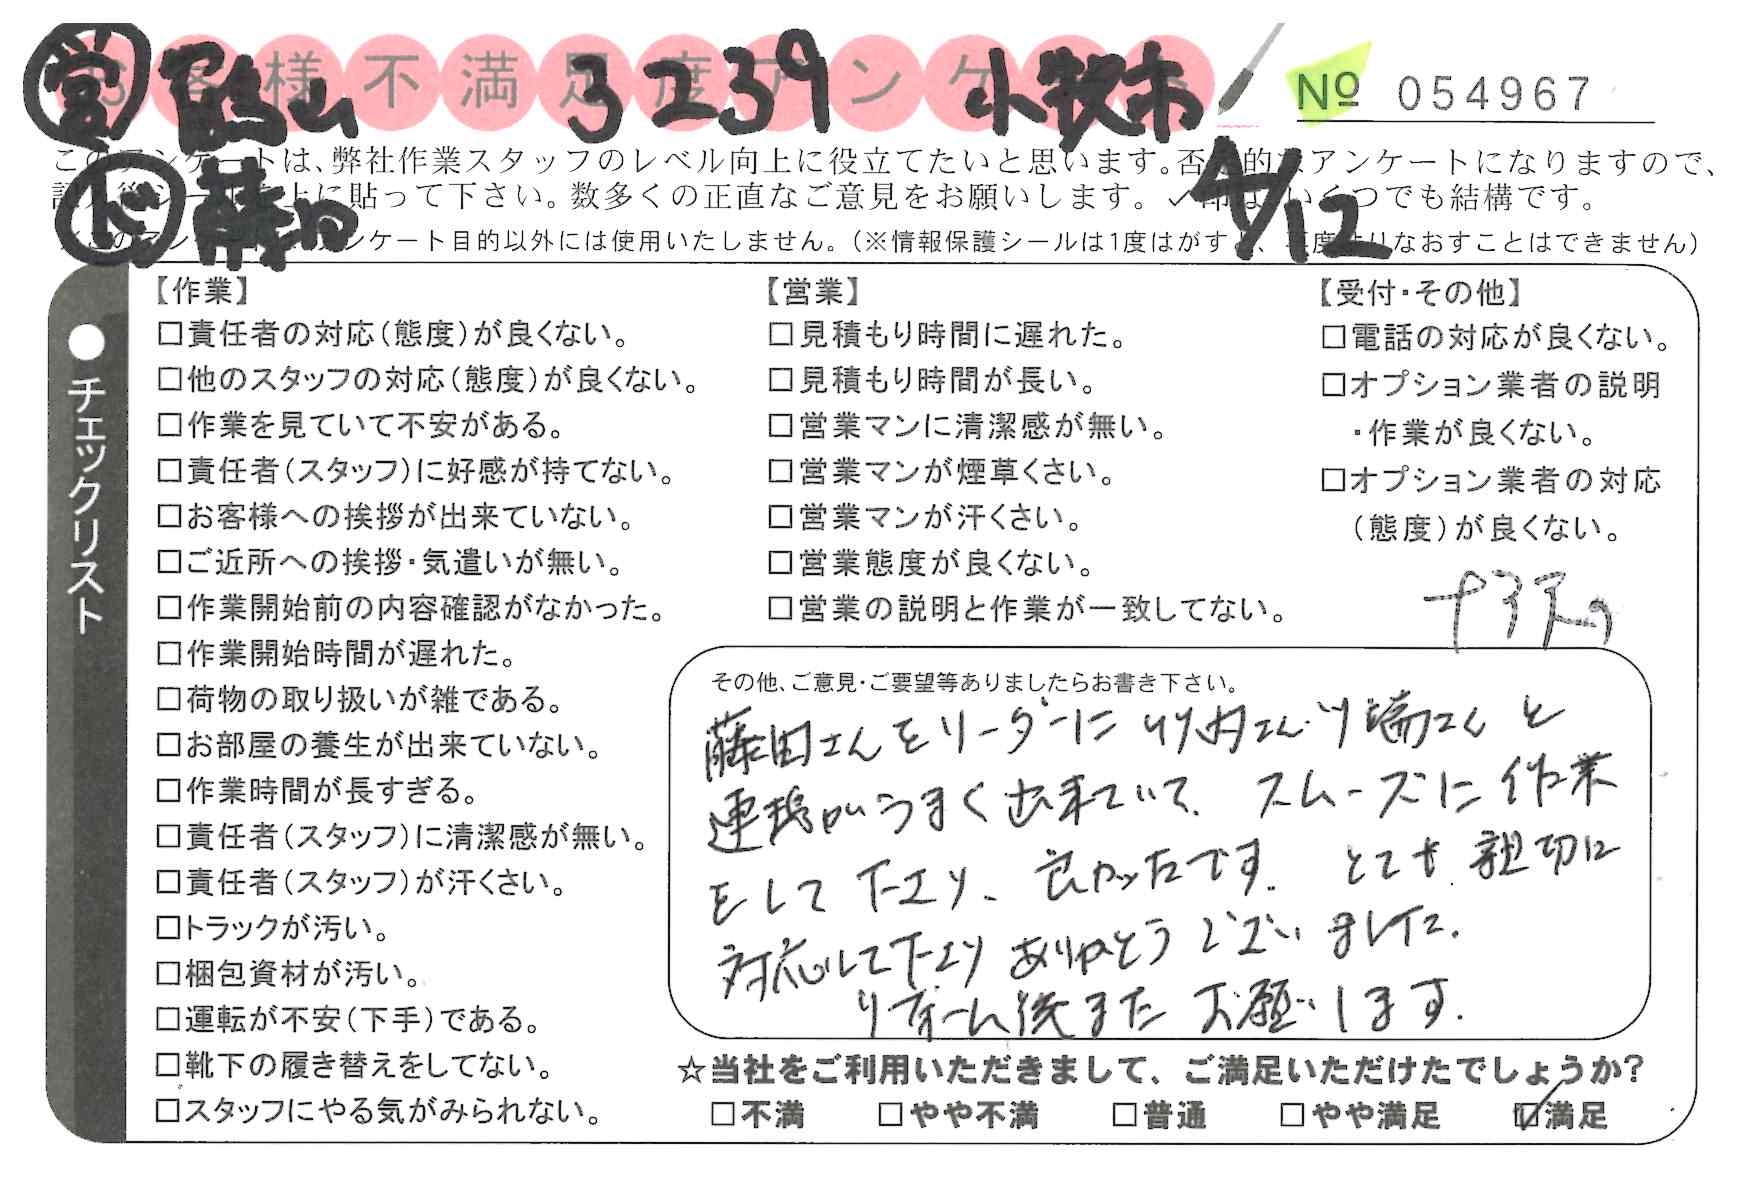 お客様不満足度アンケート
営 亀山 3239 小牧市
№ 054967
このアンケートは、弊社作業スタッフのレベル向上に役立てたいと思います。否定的なアンケートになりますので、
記入後シールを上に貼って下さい。数多くの正直なご意見をお願いします。✓印はいくつでも結構です。
ド 藤田 4/12
※このアンケートはアンケート目的以外には使用いたしません。(※情報保護シールは1度はがすと、再度はりなおすことはできません)
●チェックリスト
【作業】
□責任者の対応(態度)が良くない。
□他のスタッフの対応(態度)が良くない。
□作業を見ていて不安がある。
□責任者(スタッフ)に好感が持てない。
□お客様への挨拶が出来ていない。
□ご近所への挨拶・気遣いが無い。
□作業開始前の内容確認がなかった。
□作業開始時間が遅れた。
□荷物の取り扱いが雑である。
□お部屋の養生が出来ていない。
□作業時間が長すぎる。
□責任者(スタッフ)に清潔感が無い。
□責任者(スタッフ)が汗くさい。
□トラックが汚い。
□梱包資材が汚い。
□運転が不安(下手)である。
□靴下の履き替えをしてない。
□スタッフにやる気がみられない。
【営業】
□見積もり時間に遅れた。
□見積もり時間が長い。
□営業マンに清潔感が無い。
□営業マンが煙草くさい。
□営業マンが汗くさい。
□営業態度が良くない。
□営業の説明と作業が一致してない。
【受付・その他】
□電話の対応が良くない。
□オプション業者の説明
・作業が良くない。
□オプション業者の対応
(態度)が良くない。
その他、ご意見・ご要望等ありましたらお書き下さい。
藤田さんをリーダーに 竹内さん、川端さんと
連携がうまく出来ていて、スムーズに作業
をして下さり、良かったです。とても親切に
対応して下さりありがとうございました。
リフォーム後また お願いします。
☆当社をご利用いただきまして、ご満足いただけたでしょうか?
□不満 □やや不満 □普通 □やや満足 ☑満足